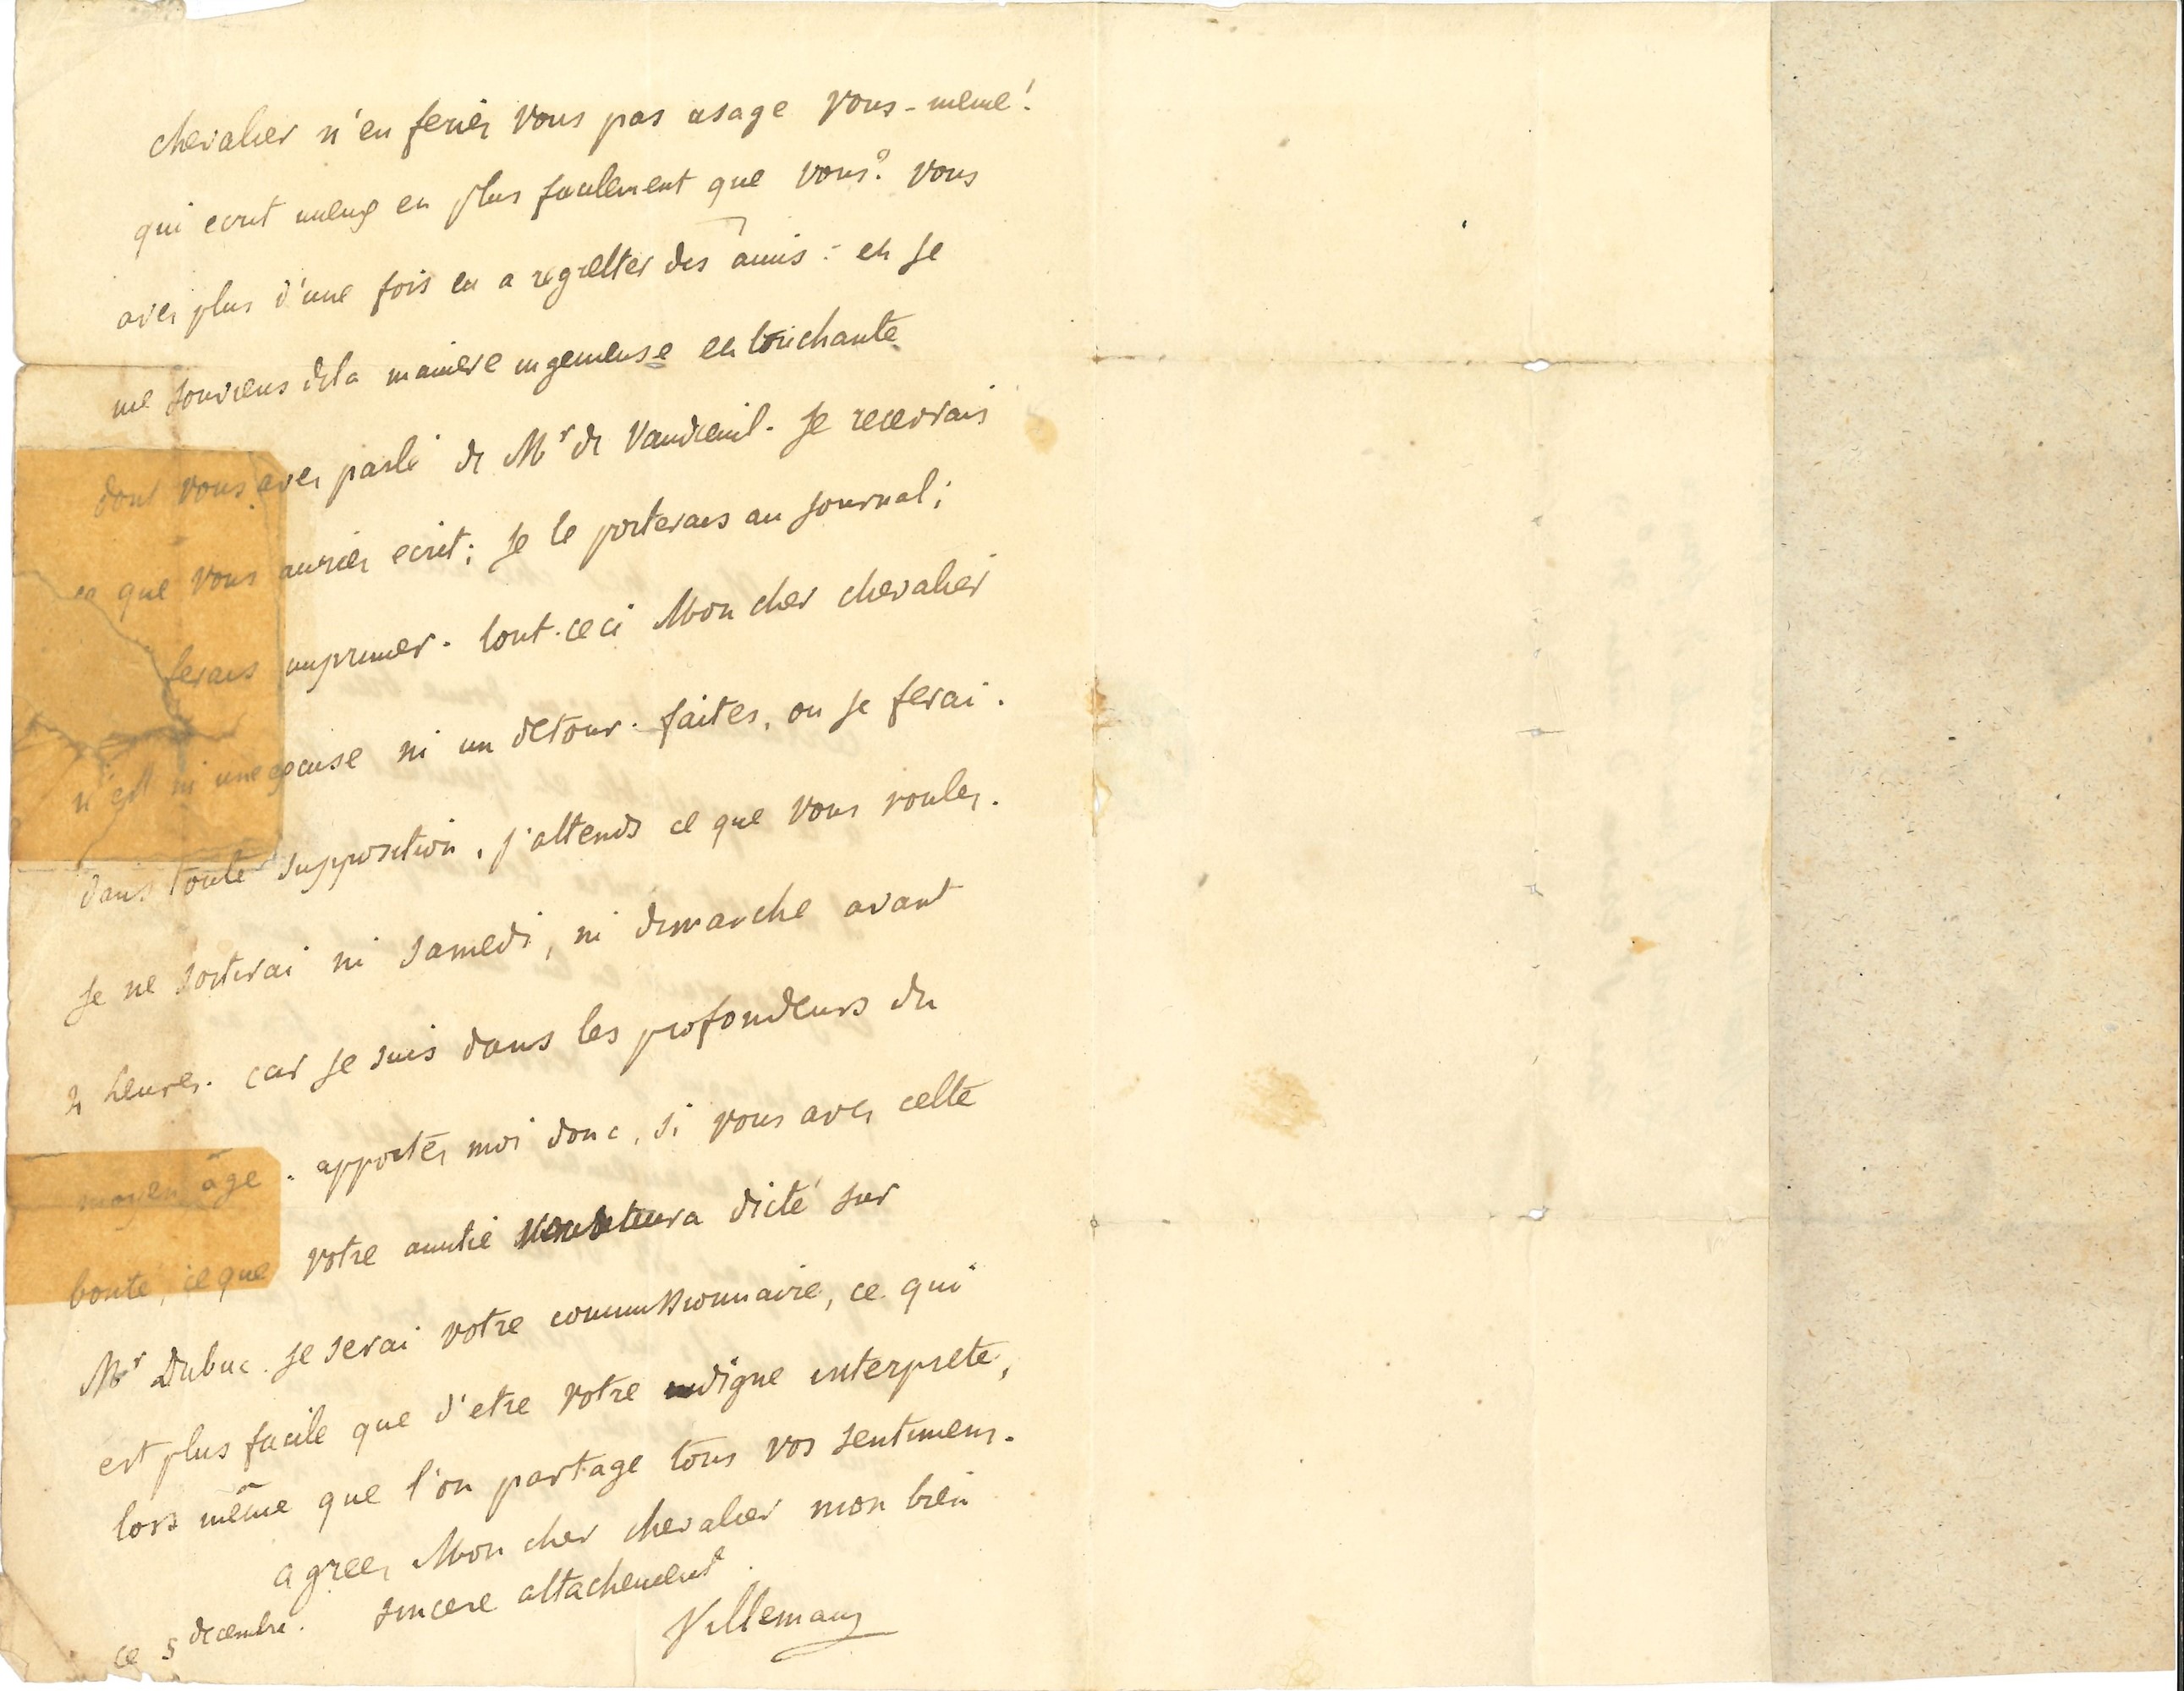 chevalier n'en feriez vous pas usage vous-meme!
qui ecrit mieux en plus facilement que vous? vous
avez plus d'une fois eu a regretter des amis: et je
me souviens dela maniere ingenieuse et touchante
dont vous avez parlé de Mr de Vaudreuil. je recevrais
ce que vous auriez ecrit; je le porterais au journal;
ferais imprimer. tout-ceci Mon cher chevalier
n'est ni une excuse ni un detour. faites, ou je ferai.
dans toute supposition, j'attends ce que vous voulez.
je ne sortirai ni samedi, ni dimanche avant
2 heures. car je suis dans les profondeurs du
moyen âge. apportez moi donc, si vous avez cette
bonté, ce que votre amitié aura dicté sur
Mr Dubuc. je serai votre commissionnaire, ce qui
est plus facile que d'etre votre indigne interprete,
lors même que l'on partage tous vos sentimens.
agreez Mon cher chevalier mon bien
sincere attachement.
ce 5 decembre.
Villemain